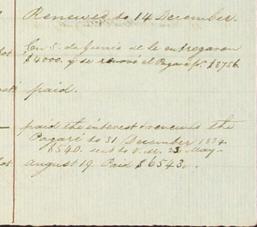 Renewed to 14 December.
Jun 5. de Junio se le entregaron
$4000. y se renovó el Pagaré pr. $3756
paid.
paid the interest & renewed the
Pagaré to 31 December 1834
$540. sent to 23 May
august 19. Paid $6543.